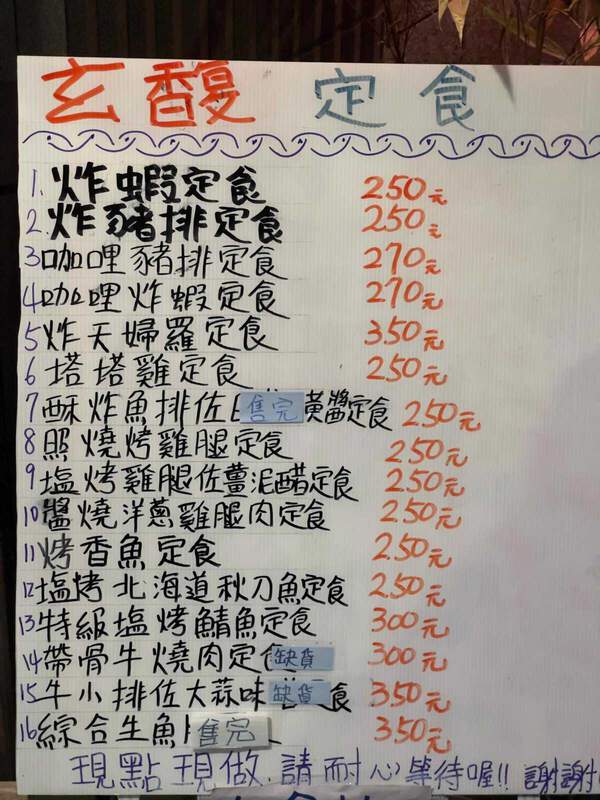 玄馥 定食
1. 炸蝦定食 250元
2. 炸豬排定食 250元
3 咖哩豬排定食 270元
4 咖哩炸蝦定食 270元
5 炸天婦羅定食 350元
6 塔塔雞定食 250元
7 酥炸魚排佐 售完 黃醬定食 250元
8 照燒烤雞腿定食 250元
9 塩烤雞腿佐薑泥醋定食 250元
10 醬燒洋蔥雞腿肉定食 250元
11 烤香魚定食 250元
12 塩烤北海道秋刀魚定食 250元
13 特級塩烤鯖魚定食 300元
14 帶骨牛燒肉定食 缺貨 300元
15 牛小排佐大蒜味 缺貨 食 350元
16 綜合生魚 售完 350元
現點現做.請耐心等待喔!! 謝謝